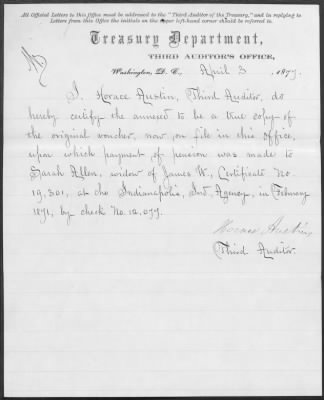 All Official Letters to this Office must be addressed to the "Third Auditor of the Treasury," and in replying to
Letters from this Office the initials on the upper left-hand corner should be referred to.
Treasury Department,
THIRD AUDITOR'S OFFICE,
Washington, D. C., April 3, 1877.
I, Horace Austin, Third Auditor, do
hereby certify the annexed to be a true copy of
the original voucher, now on file in this office,
upon which payment of pension was made to
Sarah Allen, widow of James W., Certificate No.
19,301, at the Indianapolis, Ind. Agency, in February
1871, by check No. 12,077.
Horace Austin
Third Auditor.